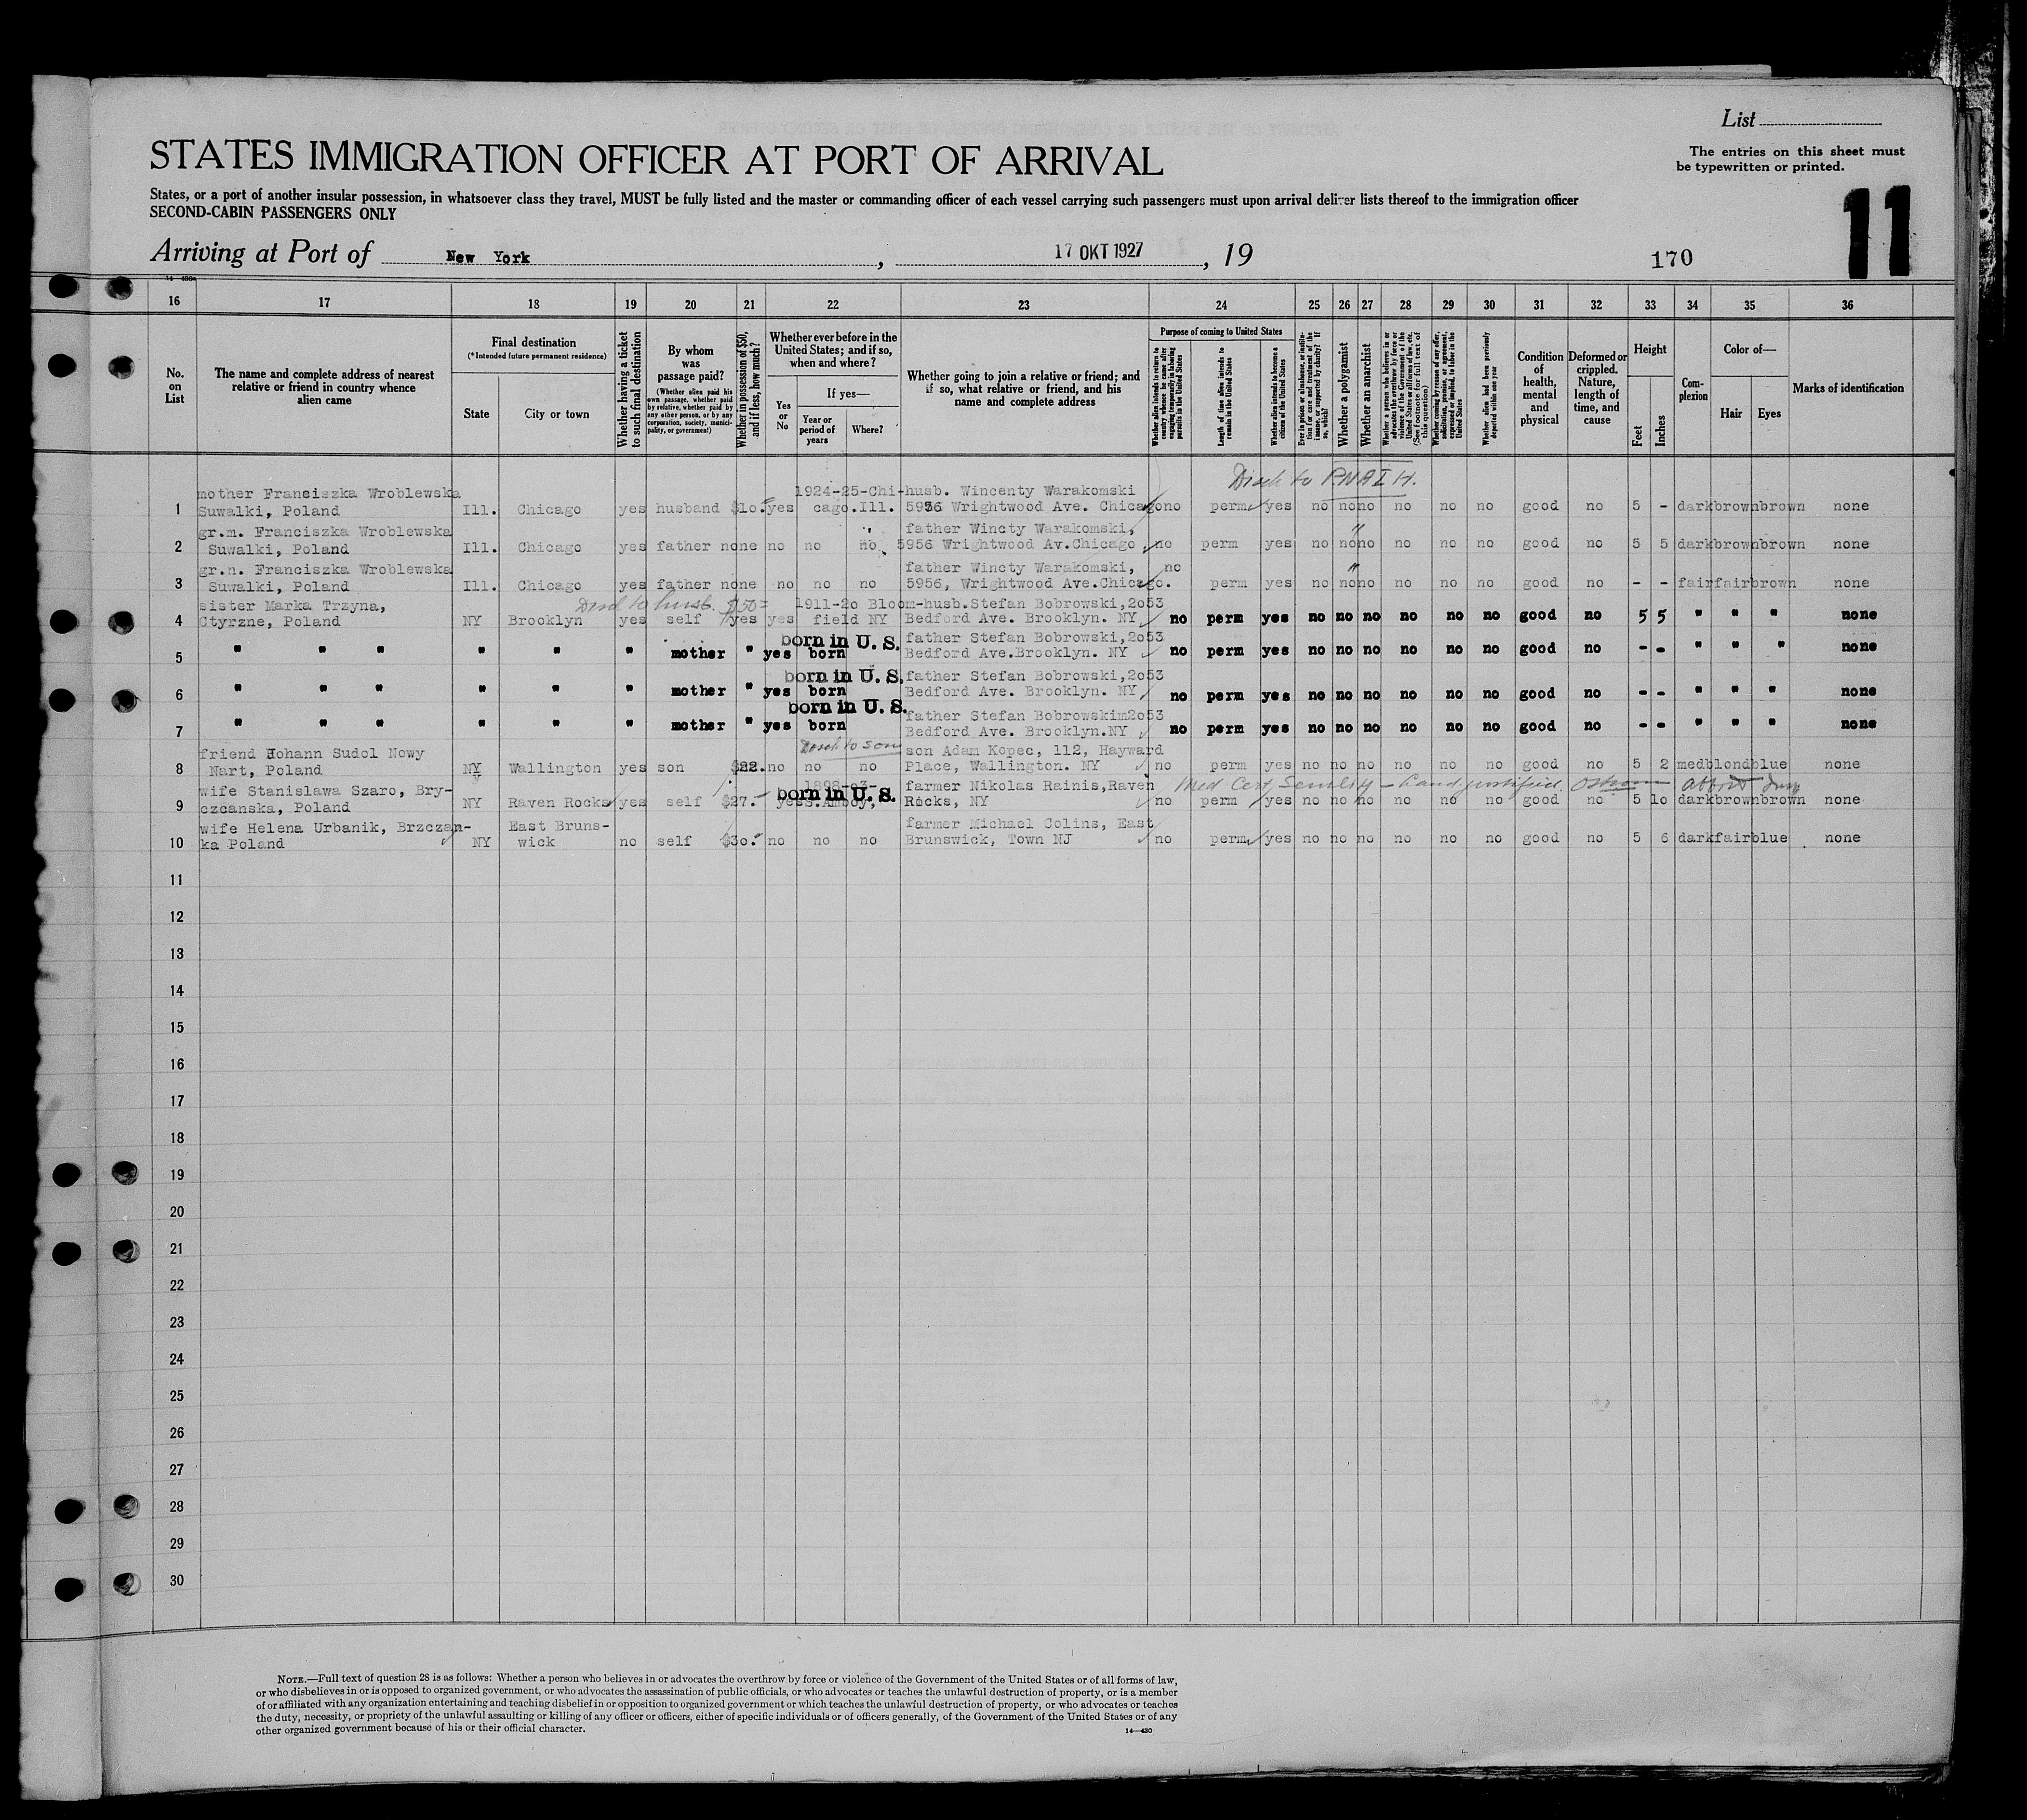 List
The entries on this sheet must
be typewritten or printed.
STATES IMMIGRATION OFFICER AT PORT OF ARRIVAL
States, or a port of another insular possession, in whatsoever class they travel, MUST be fully listed and the master or commanding officer of each vessel carrying such passengers must upon arrival deliver lists thereof to the immigration officer
SECOND-CABIN PASSENGERS ONLY
11
Arriving at Port of New York, 17 OKT 1927, 19
170
16 17 18 19 20 21 22 23 24 25 26 27 28 29 30 31 32 33 34 35 36
No. on List
The name and complete address of nearest relative or friend in country whence alien came
Final destination
(*Intended future permanent residence)
State
City or town
Whether having a ticket to such final destination
By whom was passage paid?
(Whether alien paid his own passage, whether paid by relative, whether paid by any other person, or by any corporation, society, municipality, or government)
Whether in possession of $50, and if less, how much?
Whether ever before in the United States; and if so, when and where?
If yes—
Yes or No
Year or period of years
Where?
Whether going to join a relative or friend; and if so, what relative or friend, and his name and complete address
Purpose of coming to United States
Whether alien intends to return to country whence he came after engaging temporarily in laboring pursuits in the United States
Length of time alien intends to remain in the United States
Whether alien intends to become a citizen of the United States
Ever in prison or almshouse, or institution for care and treatment of the insane, or supported by charity? If so, which?
Whether a polygamist
Whether an anarchist
Whether a person who believes in or advocates the overthrow by force or violence of the Government of the United States or all forms of law, etc. (See footnote for full text of this question)
Whether coming by reason of any offer, solicitation, promise, or agreement, expressed or implied, to labor in the United States
Whether alien had been previously deported within one year
Condition of health, mental and physical
Deformed or crippled. Nature, length of time, and cause
Height
Feet
Inches
Complexion
Color of—
Hair
Eyes
Marks of identification
Disch to
mother Franciszka Wroblewska 1924-25-Chi- husb. Wincenty Warakomski
1 Suwalki, Poland Ill. Chicago yes husband $10. yes cago.Ill. 5956 Wrightwood Ave. Chicago no perm yes no no no no no no good no 5 - dark brown brown none
gr.m. Franciszka Wroblewska " father Wincty Warakomski, "
2 Suwalki, Poland Ill. Chicago yes father none no no no 5956 Wrightwood Av.Chicago no perm yes no no no no no no good no 5 5 dark brown brown none
gr.n. Franciszka Wroblewska father Wincty Warakomski, no "
3 Suwalki, Poland Ill. Chicago yes father none no no no 5956, Wrightwood Ave.Chicago. perm yes no no no no no no good no - - fair fair brown none
sister Marka Trzyna, Disd to husb. $50= 1911-2o Bloom- husb.Stefan Bobrowski,2o53
4 Ctyrzne, Poland NY Brooklyn yes self yes yes field NY Bedford Ave. Brooklyn. NY no perm yes no no no no no no good no 5 5 " " " none
born in U. S. father Stefan Bobrowski,2o53
5 " " " " " " mother " yes born Bedford Ave.Brooklyn. NY no perm yes no no no no no no good no - - " " " none
born in U. S. father Stefan Bobrowski,2o53
6 " " " " " " mother " yes born Bedford Ave. Brooklyn. NY no perm yes no no no no no no good no - - " " " none
born in U. S. father Stefan Bobrowskim2o53
7 " " " " " " mother " yes born Bedford Ave. Brooklyn.NY no perm yes no no no no no no good no - - " " " none
friend Johann Sudol Nowy Disch to son son Adam Kopec, 112, Hayward
8 Nart, Poland NY Wallington yes son $22. no no no Place, Wallington. NY no perm yes no no no no no no good no 5 2 med blond blue none
wife Stanislawa Szaro, Bry- 1898-o3- born in U. S. farmer Nikolas Rainis,Raven Med Cert Senility
9 czcanska, Poland NY Raven Rocks yes self $27. yes S.Amboy, Rocks, NY no perm yes no no no no no no good no 5 1o dark brown brown none
wife Helena Urbanik, Brzczan- East Bruns- farmer Michael Colins, East
10 ka Poland NY wick no self $3o. no no no Brunswick, Town NJ no perm yes no no no no no no good no 5 6 dark fair blue none
11
12
13
14
15
16
17
18
19
20
21
22
23
24
25
26
27
28
29
30
NOTE.—Full text of question 28 is as follows: Whether a person who believes in or advocates the overthrow by force or violence of the Government of the United States or of all forms of law,
or who disbelieves in or is opposed to organized government, or who advocates the assassination of public officials, or who advocates or teaches the unlawful destruction of property, or is a member
of or affiliated with any organization entertaining and teaching disbelief in or opposition to organized government or which teaches the unlawful destruction of property, or who advocates or teaches
the duty, necessity, or propriety of the unlawful assaulting or killing of any officer or officers, either of specific individuals or of officers generally, of the Government of the United States or of any
other organized government because of his or their official character.
14—430